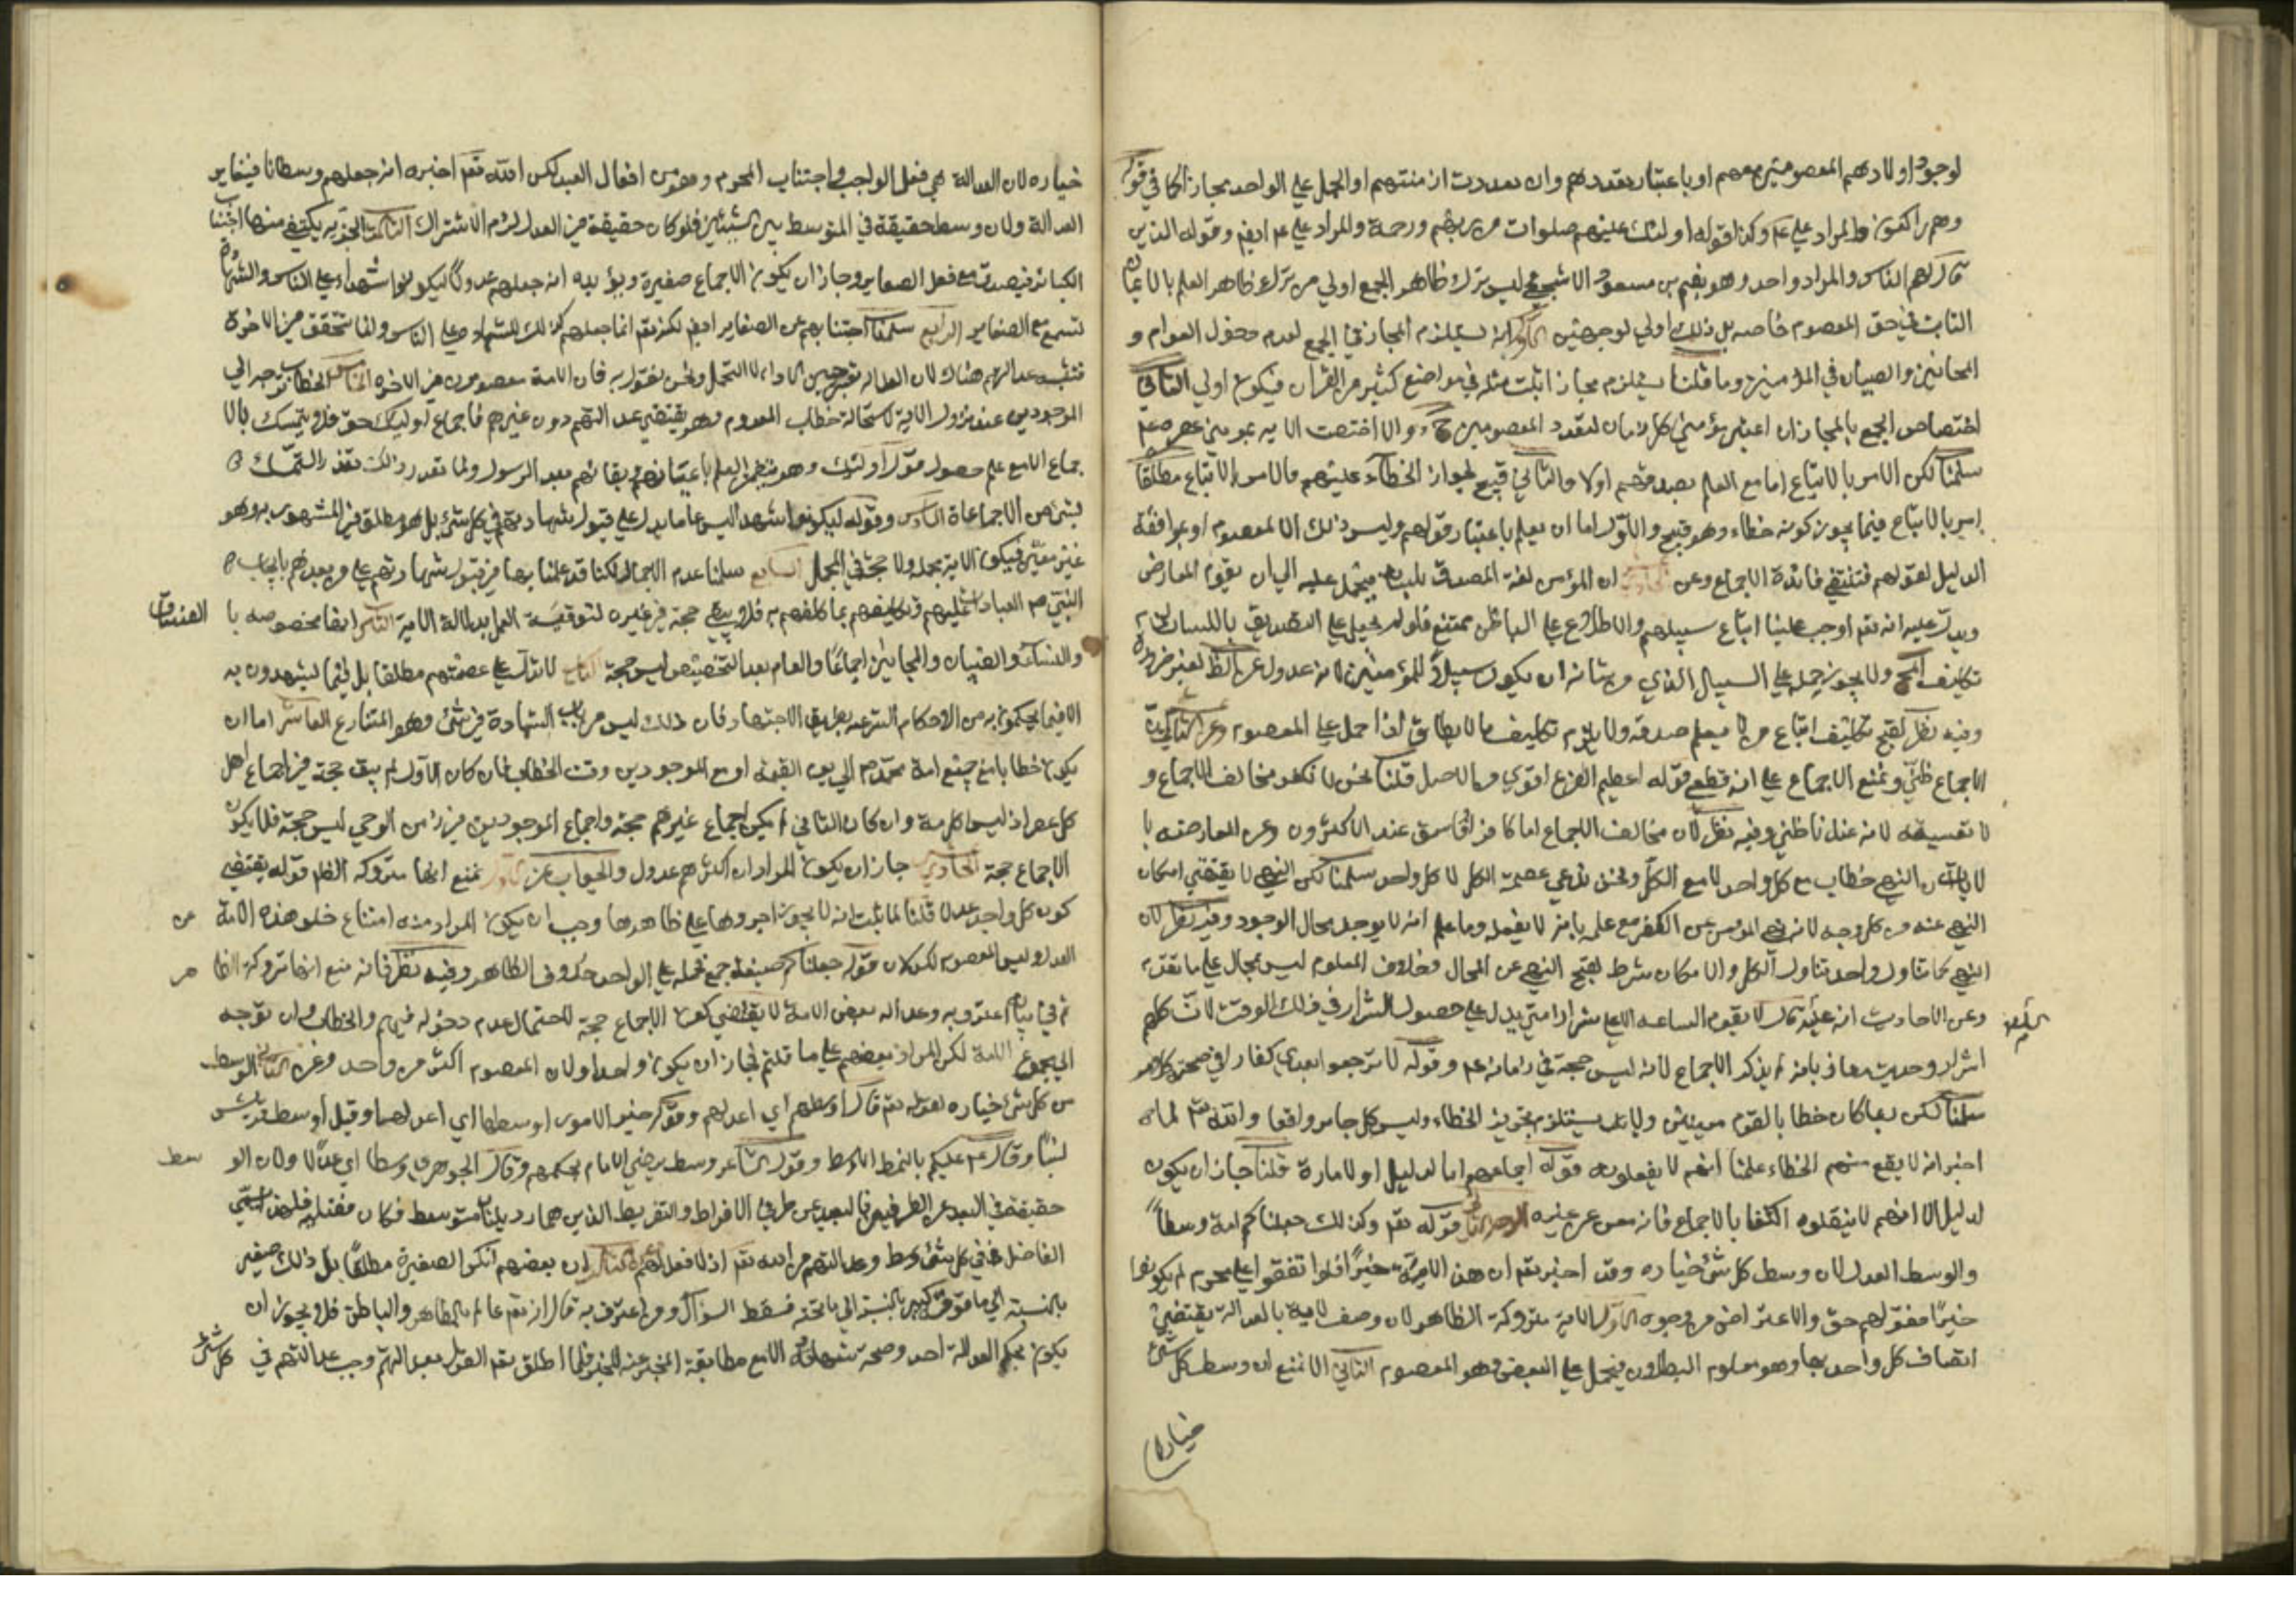 لوجود اولادهم المعصومين معهم او باعتبار تعددهم وان تعددت ازمنتهم او الحمل على الواحد مجازا كما في قوله
وهم راكعون والمراد علي عم وكذا قوله اولئك عليهم صلوات من ربهم ورحمة والمراد علي عم ايضم وقوله الذين
قال لهم الناس والمراد واحد وهو نعيم بن مسعود الاشجعي ليس ترك ظاهر الجمع اولي من ترك ظاهر العلم بالايمان
الثابت في حق المعصوم خاصه بل ذلك اولي لوجهين الاول انه يستلزم المجاز في الجمع لعدم دخول العوام و
المجانين والصبيان في المؤمنين وما قلنا يستلزم مجازا ثبت مثله في مواضع كثيرة من القرآن فيكون اولي الثاني
اختصاص الجمع بالمجاز ان اعتبر مؤمني كل زمان لتعدد المعصومين ح والا اختصت الايه بمومني عصره عم
سلمنا لكن الامر بالاتباع اما مع العلم بصدقهم اولا والثاني قبيح لجواز الخطاء عليهم والامر بالاتباع مطلقا
امر بالاتباع فيما يجوز كونه خطاء وهو قبيح والاول اما ان يعلم باعتبار قولهم وليس ذلك الا لمعصوم او بموافقة
الدليل لقولهم فتنتفي فائدة الاجماع وعن الحادي ان المؤمن لغة المصدق بلسانه فيحمل عليه الي ان يقوم المعارض
ويدل عليه انه تعم اوجب علينا اتباع سبيلهم والاطلاع علي الباطن ممتنع فلو لم يحمل علي التصديق باللسان لزم
تكليف المح ولا يجوز حمله علي السبيل الذي من شانه ان يكون سبيلا للمؤمنين لانه عدول عن الظ لغير ضرورة
وفيه نظر لقبح تكليف اتباع من لا يعلم صدقه ولا يلزم تكليف ما لا يطاق اذا حمل علي المعصوم وعن الثاني عشر
الاجماع ظني ونمنع الاجماع علي انه قطعي قوله اعظيم الفرع اقوي من الاصل قلنا نحن لا نكفر مخالف الاجماع و
لا نفسقه لانه عندنا ظني وفيه نظر لان مخالف الاجماع اما كافر او فاسق عند الاكثرون وعن المعارضه با
لايات ان النهي خطاب مع كل واحد لا مع الكل ونحن ندعي عصمة الكل لا كل واحد سلمنا لكن النهي لا يقتضي امكان
النهي عنه من كل وجه لانه نهي المؤمن عن الكفر مع علمه بانه لا يفعله وما علم انه لا يوجد محال الوجود وفيه نظر لان
النهي كما تناول واحد تناول الكل والامكان شرط لقبح النهي عن المحال وخلاف المعلوم ليس بمحال علي ما تقدم
وعن الاحاديث انه عليه قال لا يقوم الساعه الا علي شرار امتي يدل علي حصول الشرار في ذلك الوقت لا ان كلهم
اشرار وحديث معاذ بانه لم يذكر الاجماع لانه ليس حجة في زمانه عم وقوله لا ترجعوا بعدي كفارا في صحته كلام
سلمنا لكن ربما كان خطابا لقوم معينين ولا يستلزم تجويز الخطاء وليس كل جائز واقعا والله تعم لما
اخبر انه لا يقع منهم الخطاء علمنا انهم لا يفعلونه قوله اجماعهم اما لدليل او لامارة قلنا جاز ان يكون
لدليل الا انهم لا ينقلوه اكتفا بالاجماع فانه مغن عن غيره الوجه الثاني قوله تعم وكذلك جعلناكم امة وسطاً
والوسط العدل لان وسط كل شئ خياره وقد اخبر تعم ان هذه الامة خيراً فلو اتفقوا علي محرم لم يكونوا
خيرا فقولهم حق والاعتراض من وجوه الاول الاية متروكة الظاهر لان وصف الامة بالعدالة يقتضي
اتصاف كل واحد بها وهو معلوم البطلان فيحمل علي البعض وهو المعصوم الثاني الا نمنع ان وسط كل شئ
خياره
خياره لان العدالة هي فعل الواجب واجتناب المحرم وهو من افعال العبد لكن الله تعم اخبره انه جعلهم وسطا فيغاير
العدالة ولان وسط حقيقة في المتوسط بين شيئين فلو كان حقيقة في العدل لزم الاشتراك الثالث العدالة يكتفي منها اجتناب
الكبائر فيصدق مع فعل الصغاير وجاز ان يكون الاجماع صغيرة ويؤيده انه جعلهم عدولا ليكونوا شهداء علي الناس والشهادة
تسمع مع الصغاير الرابع سلمنا اجتنابهم عن الصغاير ايضم لكنه تعم انما جعلهم كذلك للشهادة علي الناس وانما تتحقق في الاخرة
فتثبت عدالتهم هناك لان العداله تعتبر حين الاداء لا التحمل ونحن نقول به فان الامة معصومون في الاخره الخامس الخطاب توجه الي
الموجودين عند نزول الاية لاستحالة خطاب المعدوم وهو يقتضي عدالتهم دون غيرهم فاجماع اولئك حق فلا يتمسك بالا
جماع الا مع علم حصول قول اولئك وهو يتضمن العلم باعيانهم وبقائهم بعد الرسول ولما تعذر ذلك تعذر التمسك
بشئ من الاجماعات السادس وقوله ليكونوا شهداء ليس عاما يدل علي قبول شهادتهم في كل شئ بل هو مطلق في المشهود به وهو
غير معين فيكون الاية مجملة ولا حجة في المجمل السابع سلمنا عدم الاجمال لكنا قد علمنا بها في قبول شهادتهم علي من بعدهم بايجاب
النبي صم العبادات عليهم وتكليفهم بما كلفهم به فلا يبقي حجة في غيره لتوقفه العمل بدلالة الاية الثامن انها مخصوصه با الفساق
والنساء والصبيان والمجانين اجماعًا والعام بعد التخصيص ليس حجة التاسع لا تدل علي عصمتهم مطلقا بل فيما يشهدون به
لا فيما يحكمون به من الاحكام الشرعيه بطريق الاجتهاد فان ذلك ليس من باب الشهادة في شئ وهو المتنازع العاشر اما ان
يكون خطابا مع جميع امة محمد صم الي يوم القيمه او مع الموجودين وقت الخطاب فان كان الاول لم يبق حجة في اجماع اهل
كل عصر اذ ليسوا كل امة وان كان الثاني لم يكن اجماع غيرهم حجة واجماع الموجودين في زمن الوحي ليس حجة فلا يكون
الاجماع حجة الحادي جاز ان يكون المراد ان اكثرهم عدول والجواب عن الاول نمنع انها متروكه الظ قوله يقتضي
كون كل واحد عدلا قلنا لما ثبت انه لا يجوز اجروها علي ظاهرها وجب ان يكون المراد منه امتناع خلو هذه الامة عن
العدل وليس المعصوم كذلك لان قوله جعلناكم صيغة جمع فحمله علي الواحد خلاف الظاهر وفيه نظر فانه منع انها متروكة الظا هر
ثم في بيانه اعترف به وعدالة بعض الامة لا يقتضي كون الاجماع حجة لاحتمال عدم دخوله فيهم والخطاب وان توجه
الي مجموع الامة لكن المراد بعضهم علي ما قلتم فجاز ان يكون واحدا ولان المعصوم اكثر من واحد وعن الثاني الوسط
من كل شئ خياره لقوله تعم قال اوسطهم اي اعدلهم وقوله خير الامور اوسطها اي اعدلها وقيل اوسط قريش
نسبًا وقال عم عليكم بالنمط الاوسط وقول الشاعر وسط يرضي الانام بحكمهم وقال الجوهري وسطا اي عدلا ولان الو سط
حقيقة في البعد عن الطرفين فالبعيد عن طرفي الافراط والتفريط الذين هما رديلتان متوسط فكان فضيلة فلهذا سمي
الفاضل في كل شئ وسط وعدالتهم من الله تعم اذ لا فعل لهم وعن الثالث ان بعضهم انكر الصغيرة مطلقا بل ذلك صغير
بالنسبة الي ما فوقه كبير بالنسبة الي ما تحته فسقط السؤال ومن اعترف به قال انه تعم عالم بالظاهر والباطن فلا يجوز ان
يكون يحكم بعدالة احد وصحة شهادته الا مع مطابقة المخبر عنه للخبر فلما اطلق تعم القول بعدالتهم وجب عدالتهم في كل شئ